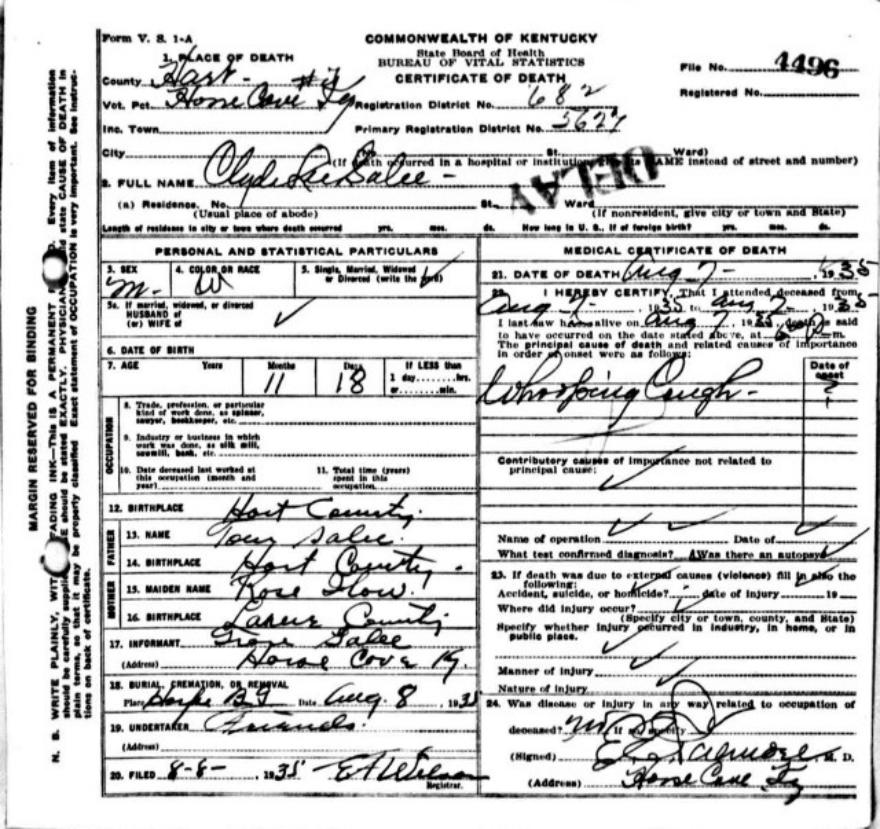 Form V. S. 1-A
COMMONWEALTH OF KENTUCKY
State Board of Health
BUREAU OF VITAL STATISTICS
CERTIFICATE OF DEATH
File No. 4496
Registered No.
1. PLACE OF DEATH
County Hart
Vot. Pct. Horse Cave Ky Registration District No. 682
Inc. Town Primary Registration District No. 5627
City No. St. Ward)
(If death occurred in a hospital or institution, NAME instead of street and number)
DELAY
2. FULL NAME Clyde Lee Salee
(a) Residence. No. St. Ward
(Usual place of abode) (If nonresident, give city or town and State)
Length of residence in city or town where death occurred yrs. mos. ds. How long in U. S., if of foreign birth? yrs. mos. ds.
PERSONAL AND STATISTICAL PARTICULARS
3. SEX M. 4. COLOR OR RACE W 5. Single, Married, Widowed or Divorced (write the word)
5a. If married, widowed, or divorced
HUSBAND of
(or) WIFE of
6. DATE OF BIRTH
7. AGE Years Months 11 Days 18 If LESS than
1 day........hrs.
or........min.
OCCUPATION
8. Trade, profession, or particular
kind of work done, as spinner,
sawyer, bookkeeper, etc.
9. Industry or business in which
work was done, as silk mill,
sawmill, bank, etc.
10. Date deceased last worked at
this occupation (month and
year)
11. Total time (years)
spent in this
occupation.
12. BIRTHPLACE Hart County
FATHER
13. NAME Tom Salee
14. BIRTHPLACE Hart County
MOTHER
15. MAIDEN NAME Rose
16. BIRTHPLACE Larue County
17. INFORMANT Salee
(Address) Horse Cave Ky.
18. BURIAL, CREMATION, OR REMOVAL
Place Date Aug. 8, 1935
19. UNDERTAKER Friends
(Address)
20. FILED 8-8-, 1935 Registrar.
MEDICAL CERTIFICATE OF DEATH
21. DATE OF DEATH Aug 7-, 1935
22. I HEREBY CERTIFY, That I attended deceased from
Aug 7-, 1935 to Aug 7, 1935
I last saw h alive on Aug 7, 1935, death is said
to have occurred on the date stated above, at m.
The principal cause of death and related causes of importance
in order of onset were as follows:
Date of
onset
Whooping Cough- ?
Contributory causes of importance not related to
principal cause:
Name of operation Date of
What test confirmed diagnosis? Was there an autopsy?
23. If death was due to external causes (violence) fill in also the
following:
Accident, suicide, or homicide? date of injury 19
Where did injury occur?
(Specify city or town, county, and State)
Specify whether injury occurred in industry, in home, or in
public place.
Manner of injury
Nature of injury
24. Was disease or injury in any way related to occupation of
deceased? no If so, specify
(Signed) M. D.
(Address) Horse Cave Ky
MARGIN RESERVED FOR BINDING